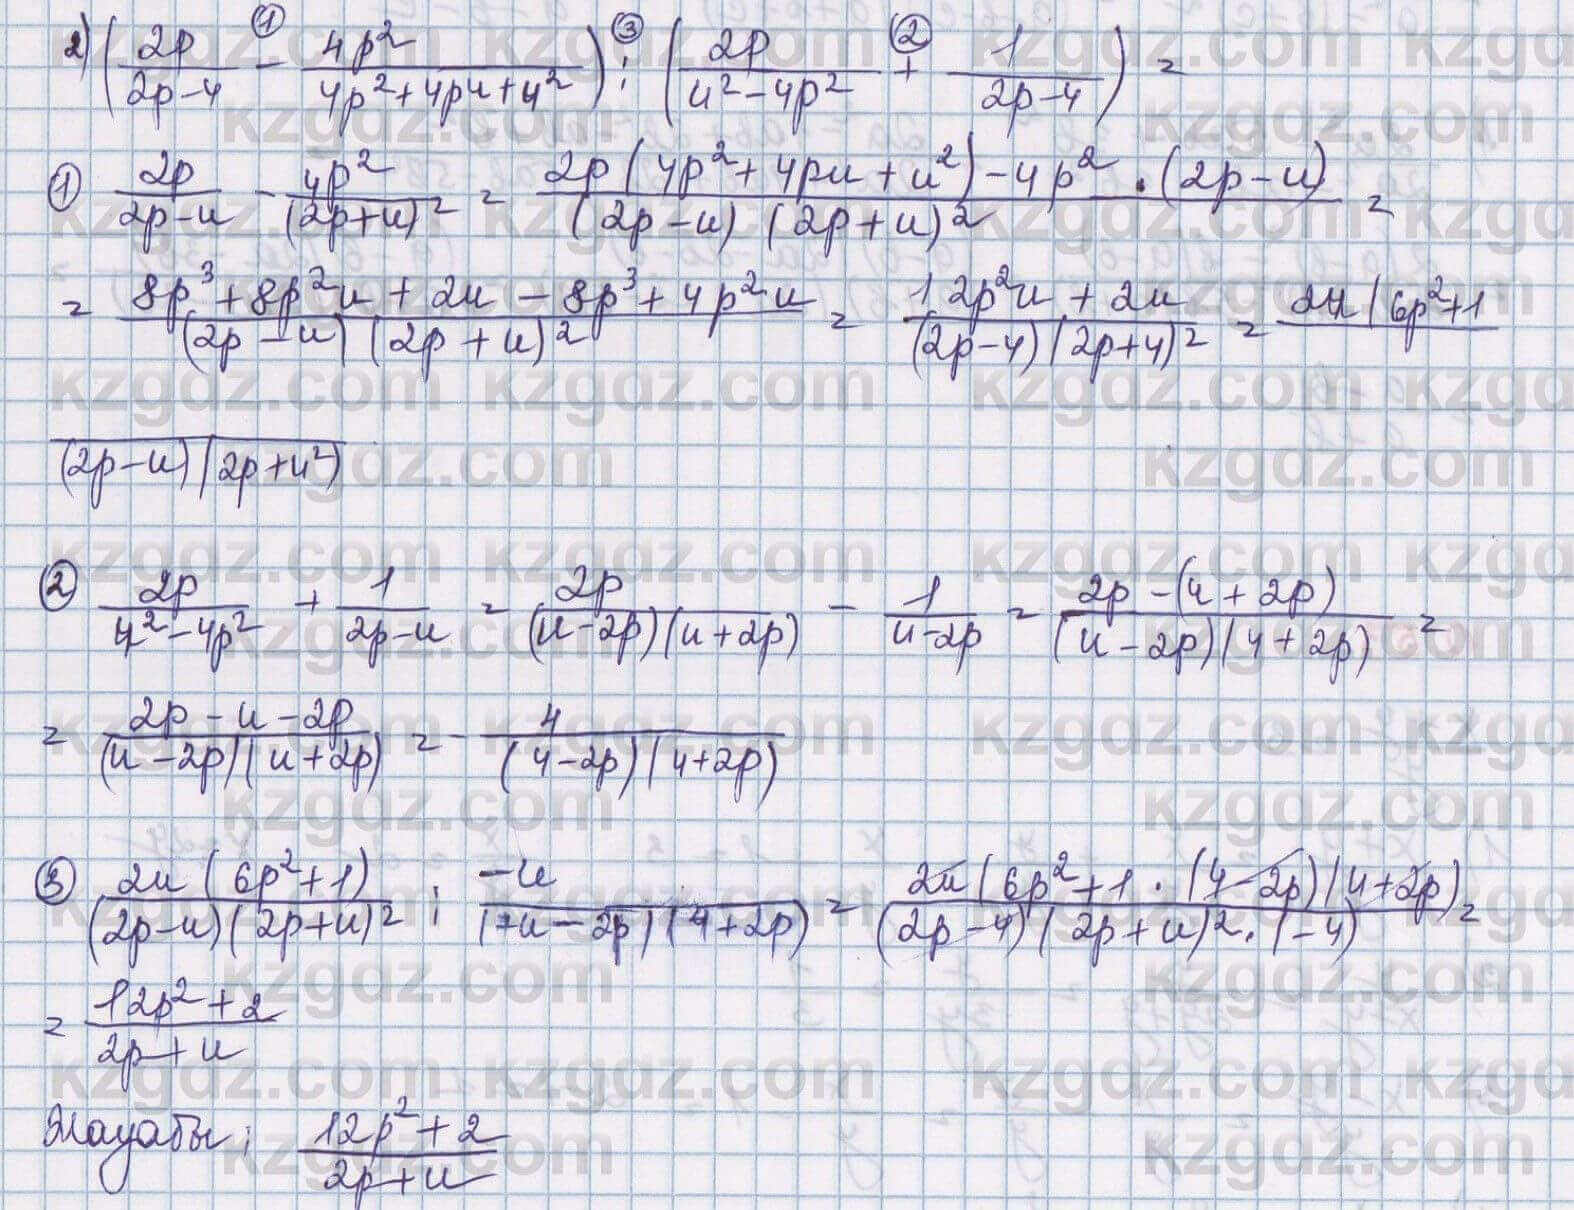 2) (2p/(2p-u) - 4p²/(4p²+4pu+u²)) : (2p/(u²-4p²) + 1/(2p-u)) =
① ③ ②
① 2p/(2p-u) - 4p²/(2p+u)² = (2p(4p²+4pu+u²)-4p²·(2p-u))/((2p-u)(2p+u)²) =
= (8p³+8p²u+2u-8p³+4p²u)/((2p-u)(2p+u)²) = (12p²u+2u)/((2p-u)(2p+u)²) = 2u(6p²+1
(2p-u)(2p+u²)
② 2p/(u²-4p²) + 1/(2p-u) = 2p/((u-2p)(u+2p)) - 1/(u-2p) = (2p-(u+2p))/((u-2p)(u+2p)) =
= (2p-u-2p)/((u-2p)(u+2p)) = -u/((u-2p)(u+2p))
③ 2u(6p²+1)/((2p-u)(2p+u)²) : -u/((u-2p)(u+2p)) = (2u(6p²+1·(u-2p)(u+2p))/((2p-u)(2p+u)²·(-u)) =
= (12p²+2)/(2p+u)
Жауабы: (12p²+2)/(2p+u)
kzgdz.com